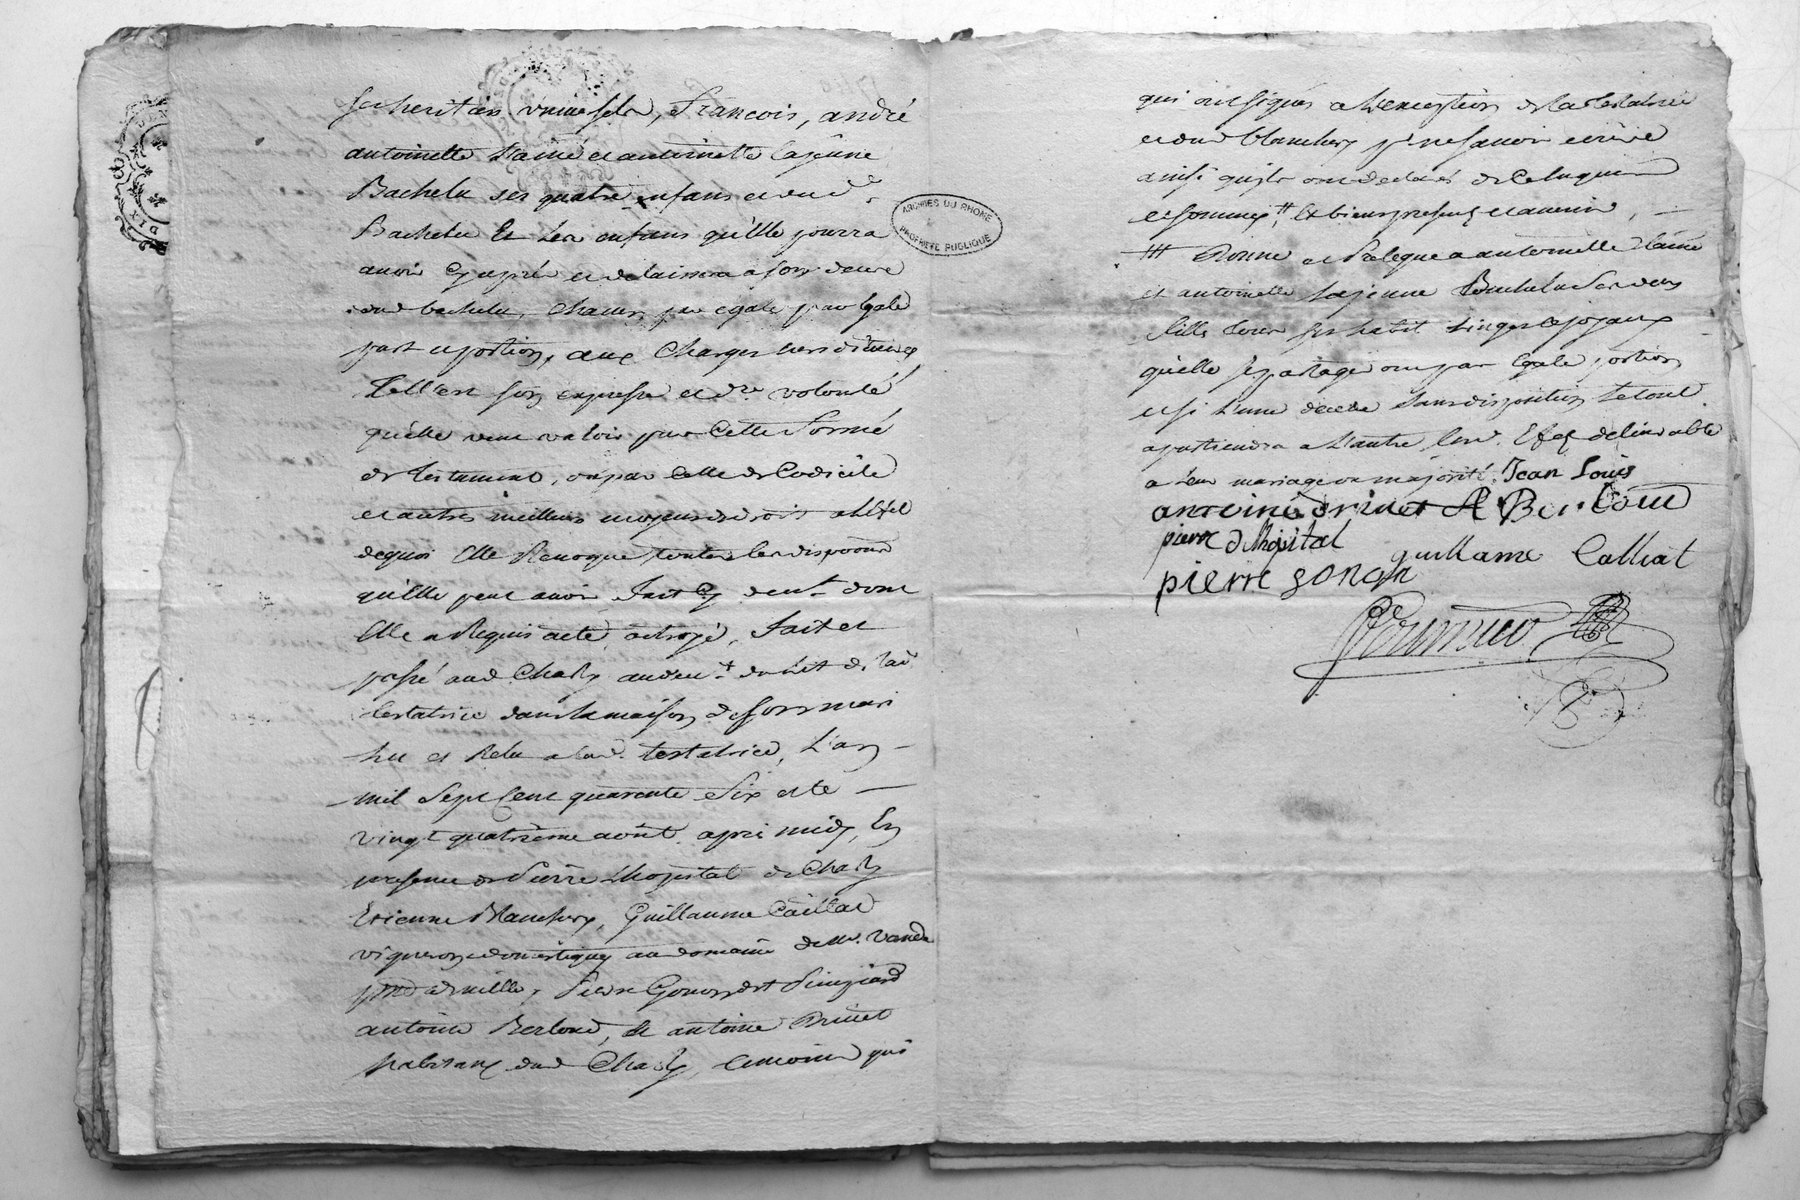 ses heritiers universels, François, andré
antoinette L'ainé et antoinette Lajeune
Bachelu ses quatre enfans et dud.
Bachelu Et les enfans qu'Elle pourra
avoir Cy après et delaissera a son deces
dud bachelu, chacun par egale par Egale
part et portion, aux Charges hereditaires
Tell'est son expresse et dre volonté
qu'elle veut valoir par Cette Forme
de testament, ou par Celle de Codicile
et autres meilleurs moyens de droit a L'effet
dequoi Elle Revoque toutes les dispoons
qu'Elle peut avoir fait Cy devt dont
Elle a Requis acte, octroyé, fait et
passé aud. Charly audevt du Lit de lad
testatrice dans la maison de son mari
Lu et Relu a lad. testatrice, L'an
mil Sept Cent quarente Six et le
vingt quatrième août après midy, En
presence de Pierre Lhopital de Charly
Etienne Blanchery, Guillaume Caillat
vignerons domestiques au domaine de Mr. Vande
Pierre Gonon
antoine Berloud, & antoine Brinet
habitans dud Charly, temoins qui
ARCHIVES DU RHONE
PROPRIETE PUBLIQUE
qui ont signés a L'exception de la testatrice
et dud blanchery pr ne savoir ecrire
ainsi qu'ils ont declarés de Ce Enquis
et sommés # Et biens presens et avenir,
### Donne et Prelegue a antoinette L'ainé
et antoinette Lajeune Bachelu Ses deux
fille tous ses habit Linges et joyaux
qu'elle se partageront par Egale portion
et si L'une decede Sans disposition Le tout
apartiendra a L'autre Lesd. Efets delivrable
a leur mariage ou majorité. Jean Louis
antoine brinet A Berloud
pierre Lhôpital guillaume Calliat
pierre gonon